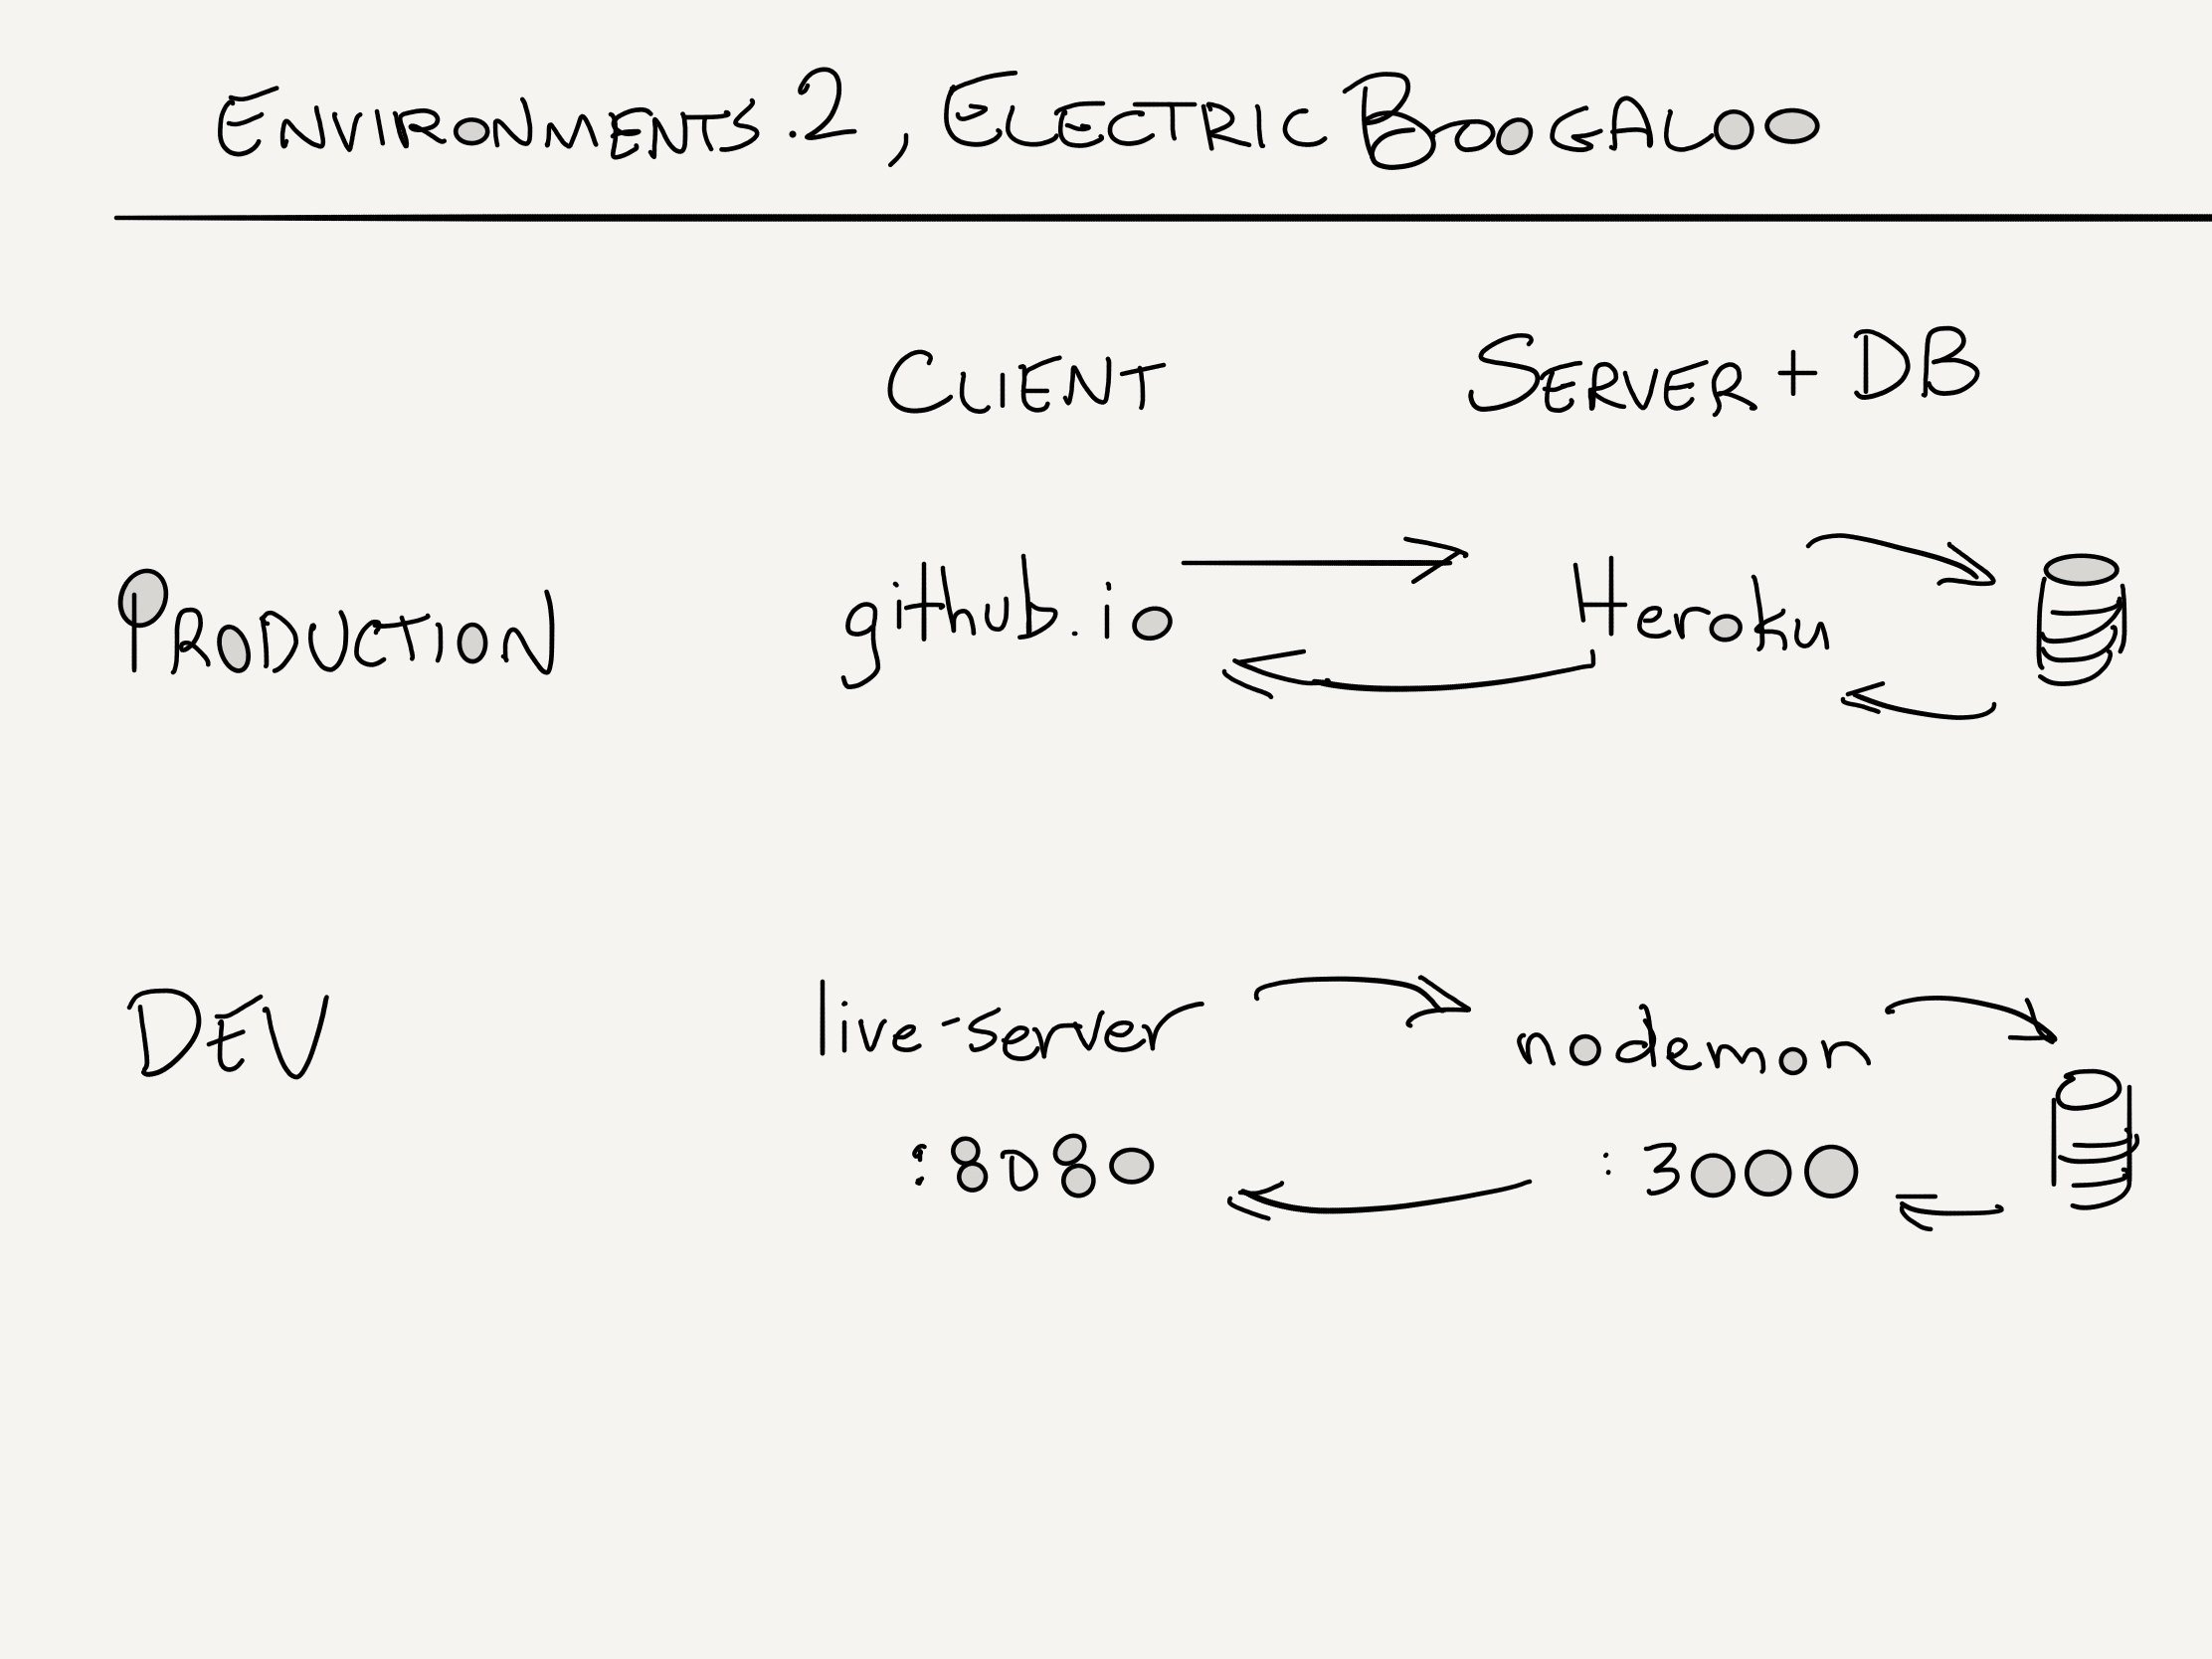 ENVIRONMENTS.2, ELECTRIC BOOGALOO
CLIENT SERVER + DB
PRODUCTION github.io Heroku
DEV live-server nodemon
:8080 :3000